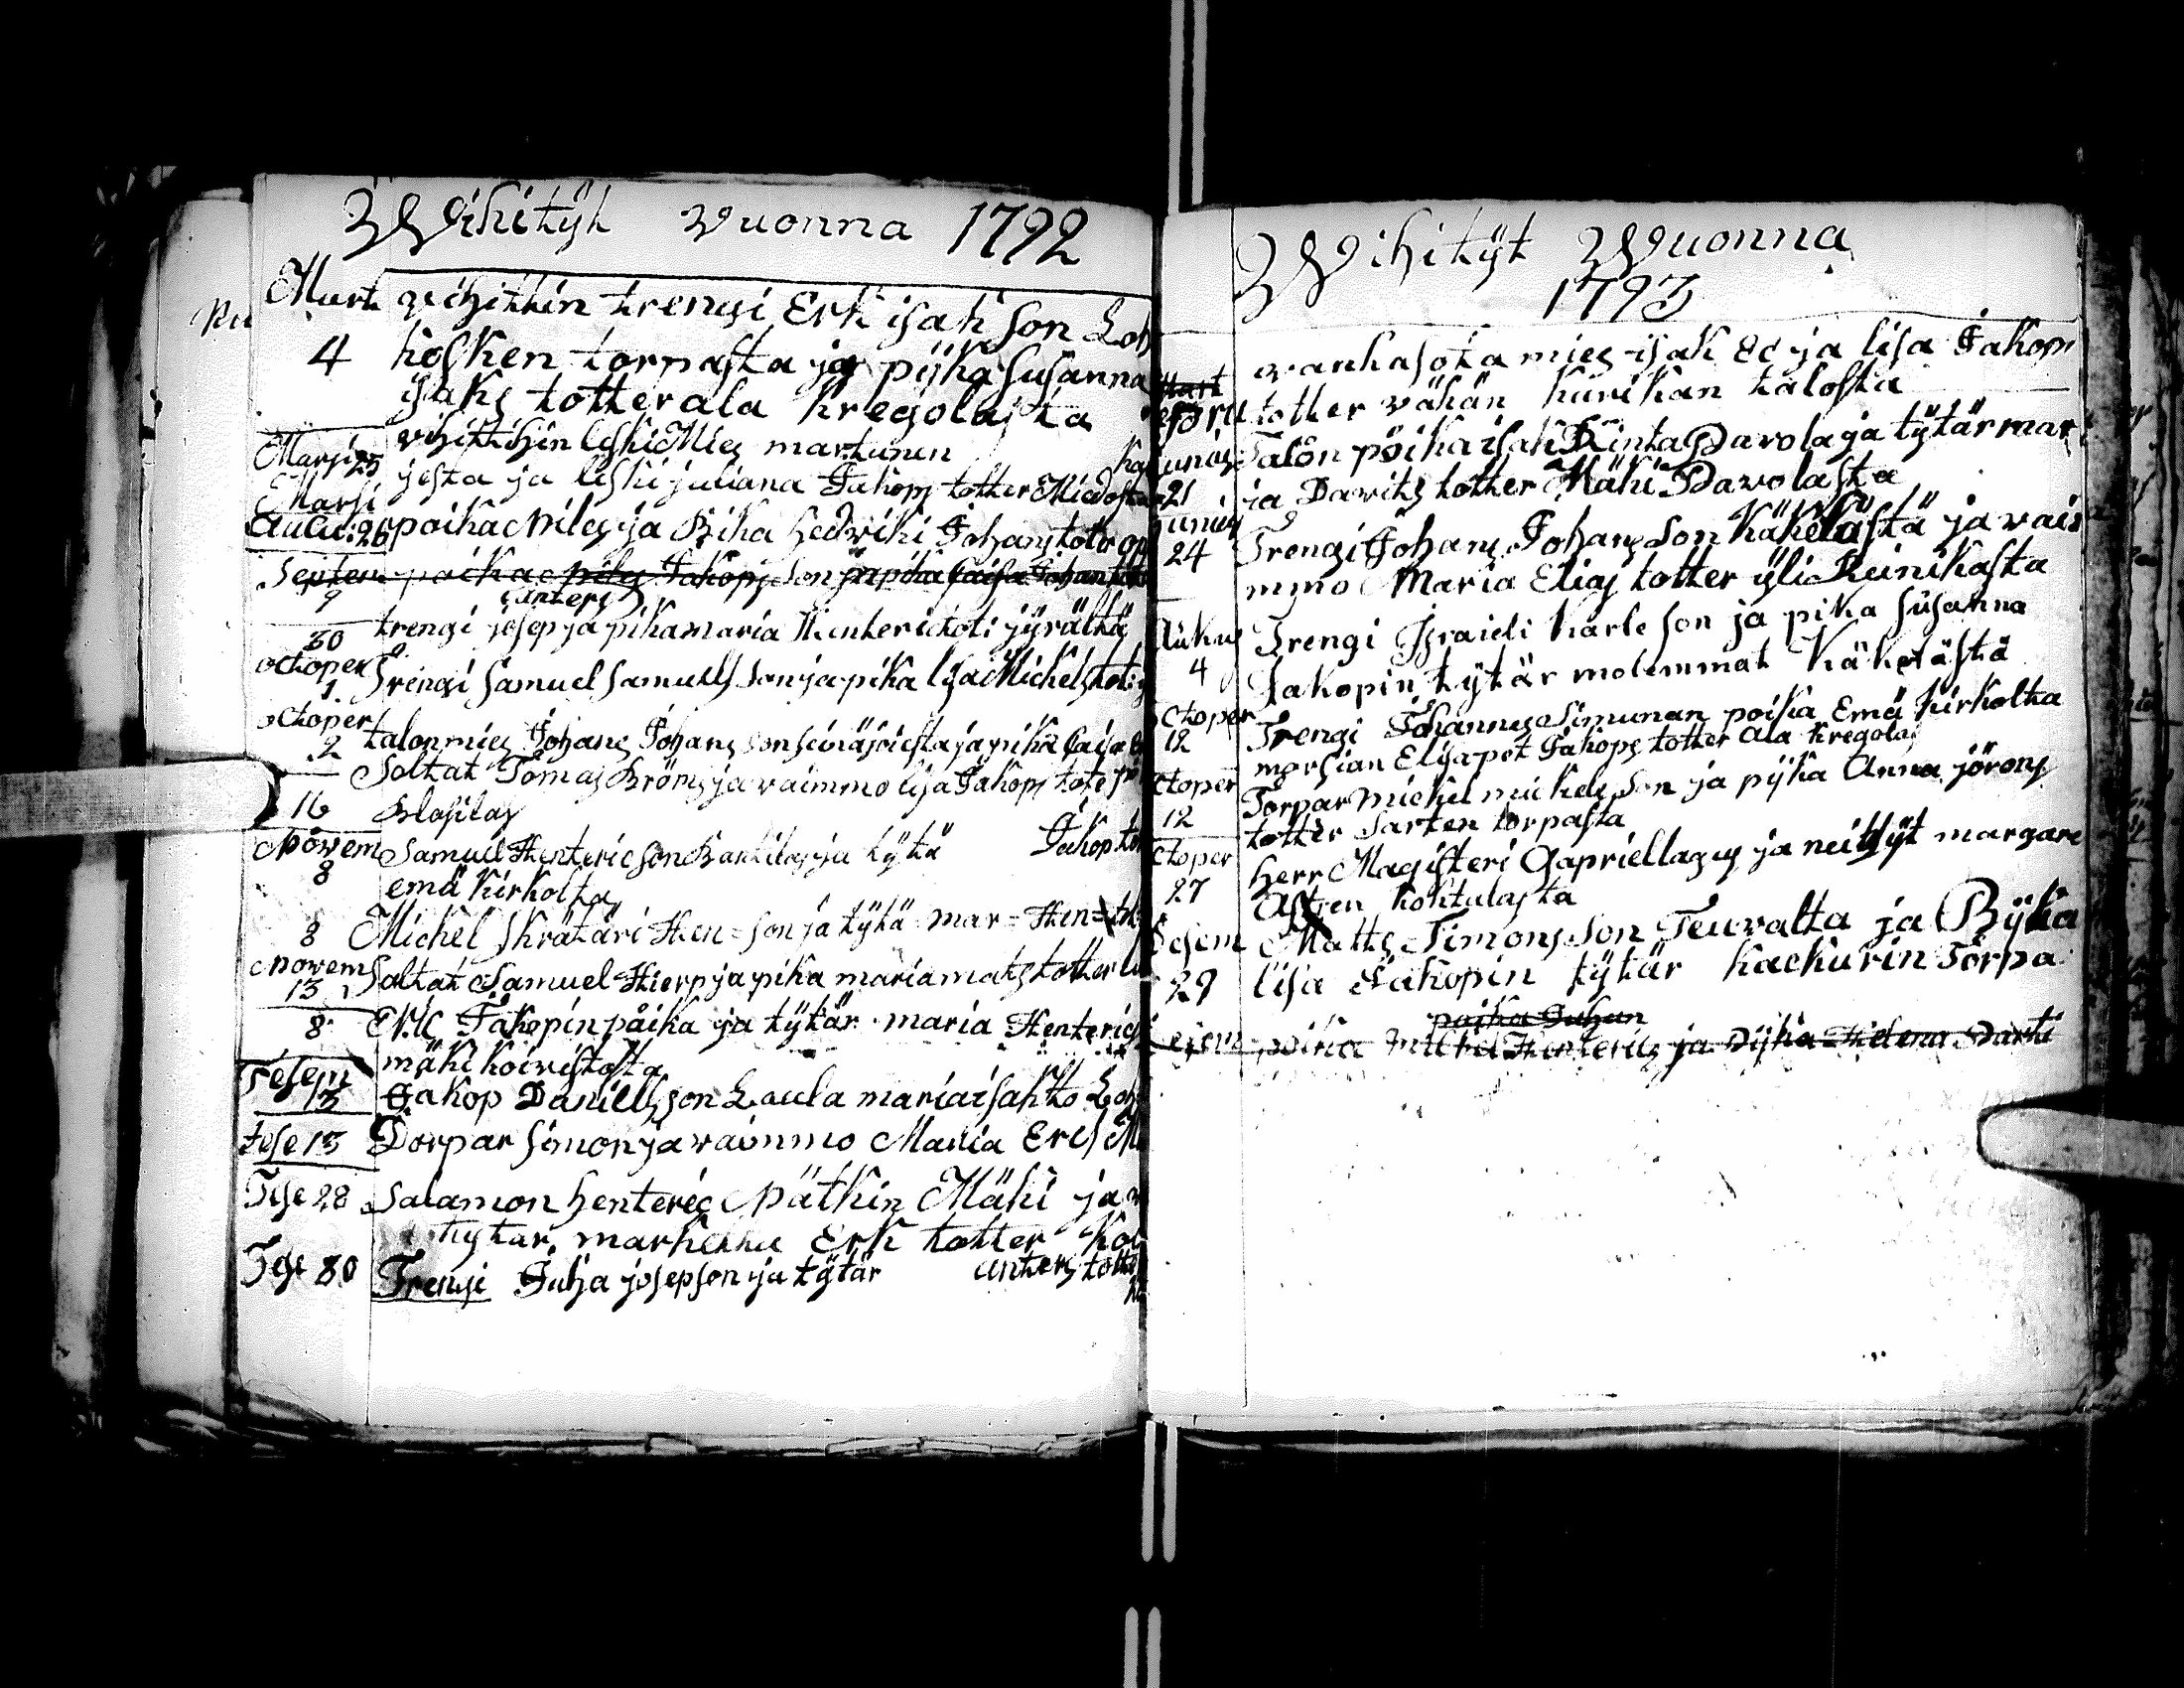 Wihityt vuonna 1792
Mart wihittin trengi Erk isak son Loh
4 kosken torpasta ja pijka susanna
isaks totter ala kregolasta
wihittihin leski Mies martunen
Marsi 25 josta ja leski juliana Jakops totter Miedosta
Marsi
Auu: 26 poika Niles ja Bika hedwiki Johans toter
Septem poika pils Jakops son ja pika Caisa Johan
9 anters
trengi josep ja pika maria Henteric toti jyrältä
30
octoper Trengi Samuel Samuels son ja pika lisa Michels tot:
1
octoper talon mies Johans Johans son seinäjoesta ja pika Caisa
2
Soltat Tomas Bröms ja vaimmo lisa Jakops tote
16 Blasilas
Novem Samuel Henteric son Bankilas ja tytä Jakop tot
8 emä kirkolta
8 Michel skrätäri Hen= son ja tytä mar= Hen=
Novem Saltat Samuel Hierp ja pika maria mats totter
13
8 Jakopin påika ja tytär maria Henterics
mäki koivistosta
Tesem
13 Jakop Daniells son Laula maria isak to Loh
tese 13 Dorpar simon ja vainmo Maria Ercs
Tese 28 Salamon henteric Nätkin Mäki ja
tytar marketa Erk totter
Tese 30 Trengi Juha josepson ja tytär anters tott
Wihityt Wuonna
1793
Mart wanha sota mies isak ja lisa Jakops
totter vähän kurikan talosta
Junius Talon pöika isak Rinta Pavola ja tytär mar
21 ia Davits totter Mäki Pavolasta
Junius
24 Trengi Johans Johans son Käkelästä ja vai
mmo Maria Elias totter yli Reinikasta
Aukus Trengi Israieli karle son ja pika susanna
4 Jakopin tytär molemmat Käkelästä
octoper Trengi Johannes Simunan poika Emä kirkolta
12 morsian Elisapet Jakops totter ala kregola
octoper Torpar michel mickels son ja pijka Anna jörons
12 totter Sarten torpasta
octoper herr Magisteri Gapriellagus ja neitsyt margare
27 Astren kohtulasta
Desem Matts Simons son Teuvalta ja Byka
29 lisa Jakopin tytär kackurin Torpa
paika Juhan
esem poika Mickel Henterics ja Pijka Helena